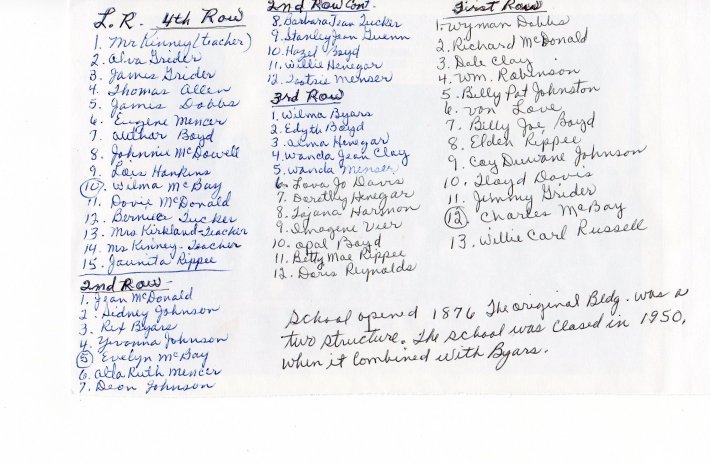 L.R. 4th Row
1. Mr Kinney (teacher)
2. Alva Grider
3. James Grider
4. Thomas Allen
5. James Dobbs
6. Eugene Mencer
7. Authar Boyd
8. Johnnie McDowell
9. Lois Hankins
10. Wilma McBay
11. Dovie McDonald
12. Bernice Tucker
13. Mrs Kirkland-Teacher
14. Ms Kinney-Teacher
15. Jaunita Rippee
2nd Row
1. Jean McDonald
2. Sidney Johnson
3. Rex Byars
4. Yvonna Johnson
5. Evelyn McBay
6. Alda Ruth Mencer
7. Deon Johnson
2nd Row Cont.
8. Barbara Jean Tucker
9. Stanley Jean Guenn
10. Hazel Boyd
11. Willie Henegar
12. Tootsie Menser
3rd Row
1. Wilma Byars
2. Edyth Boyd
3. Alma Henegar
4. Wanda Jean Clay
5. Wanda Menser
6. Lova Jo Davis
7. Dorothy Henegar
8. Tajana Harmon
9. Imogene Vier
10. Opal Boyd
11. Betty Mae Rippee
12. Doris Reynolds
First Row
1. Wyman Dobbs
2. Richard McDonald
3. Dale Clay
4. Wm. Robinson
5. Billy Pat Johnston
6. Von Love
7. Billy Joe Boyd
8. Elden Rippee
9. Coy Duwane Johnson
10. Lloyd Davis
11. Jimmy Grider
12. Charles McBay
13. Willie Carl Russell
School opened 1876 The original Bldg. was a
two structure. The school was closed in 1950,
when it combined with Byars.